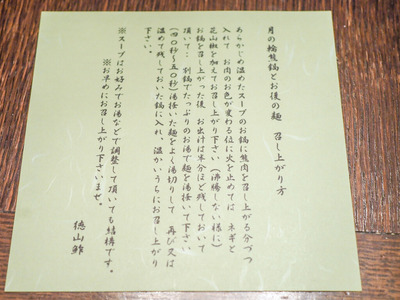 月の輪熊鍋とお後の麺 召し上がり方
あらかじめ温めたスープのお鍋に熊肉を召し上がる分づつ
入れて お肉のお色が変わる位に火を止めては ネギと
花山椒を加えてお召し上がり下さい（沸騰しない様に）
お鍋を召し上がった後、お出汁は半分ほど残しておいて
頂いて、別鍋でたっぷりのお湯で麺を湯掻いて下さい
（四〇秒〜五〇秒）湯掻いた麺をよく湯切りして 再び又は
温めて残しておいた鍋に入れ、温かいうちにお召し上がり
下さい。
※スープはお好みでお湯などで調整して頂いても結構です。
※お早めにお召し上がり下さいませ。
徳山鮓